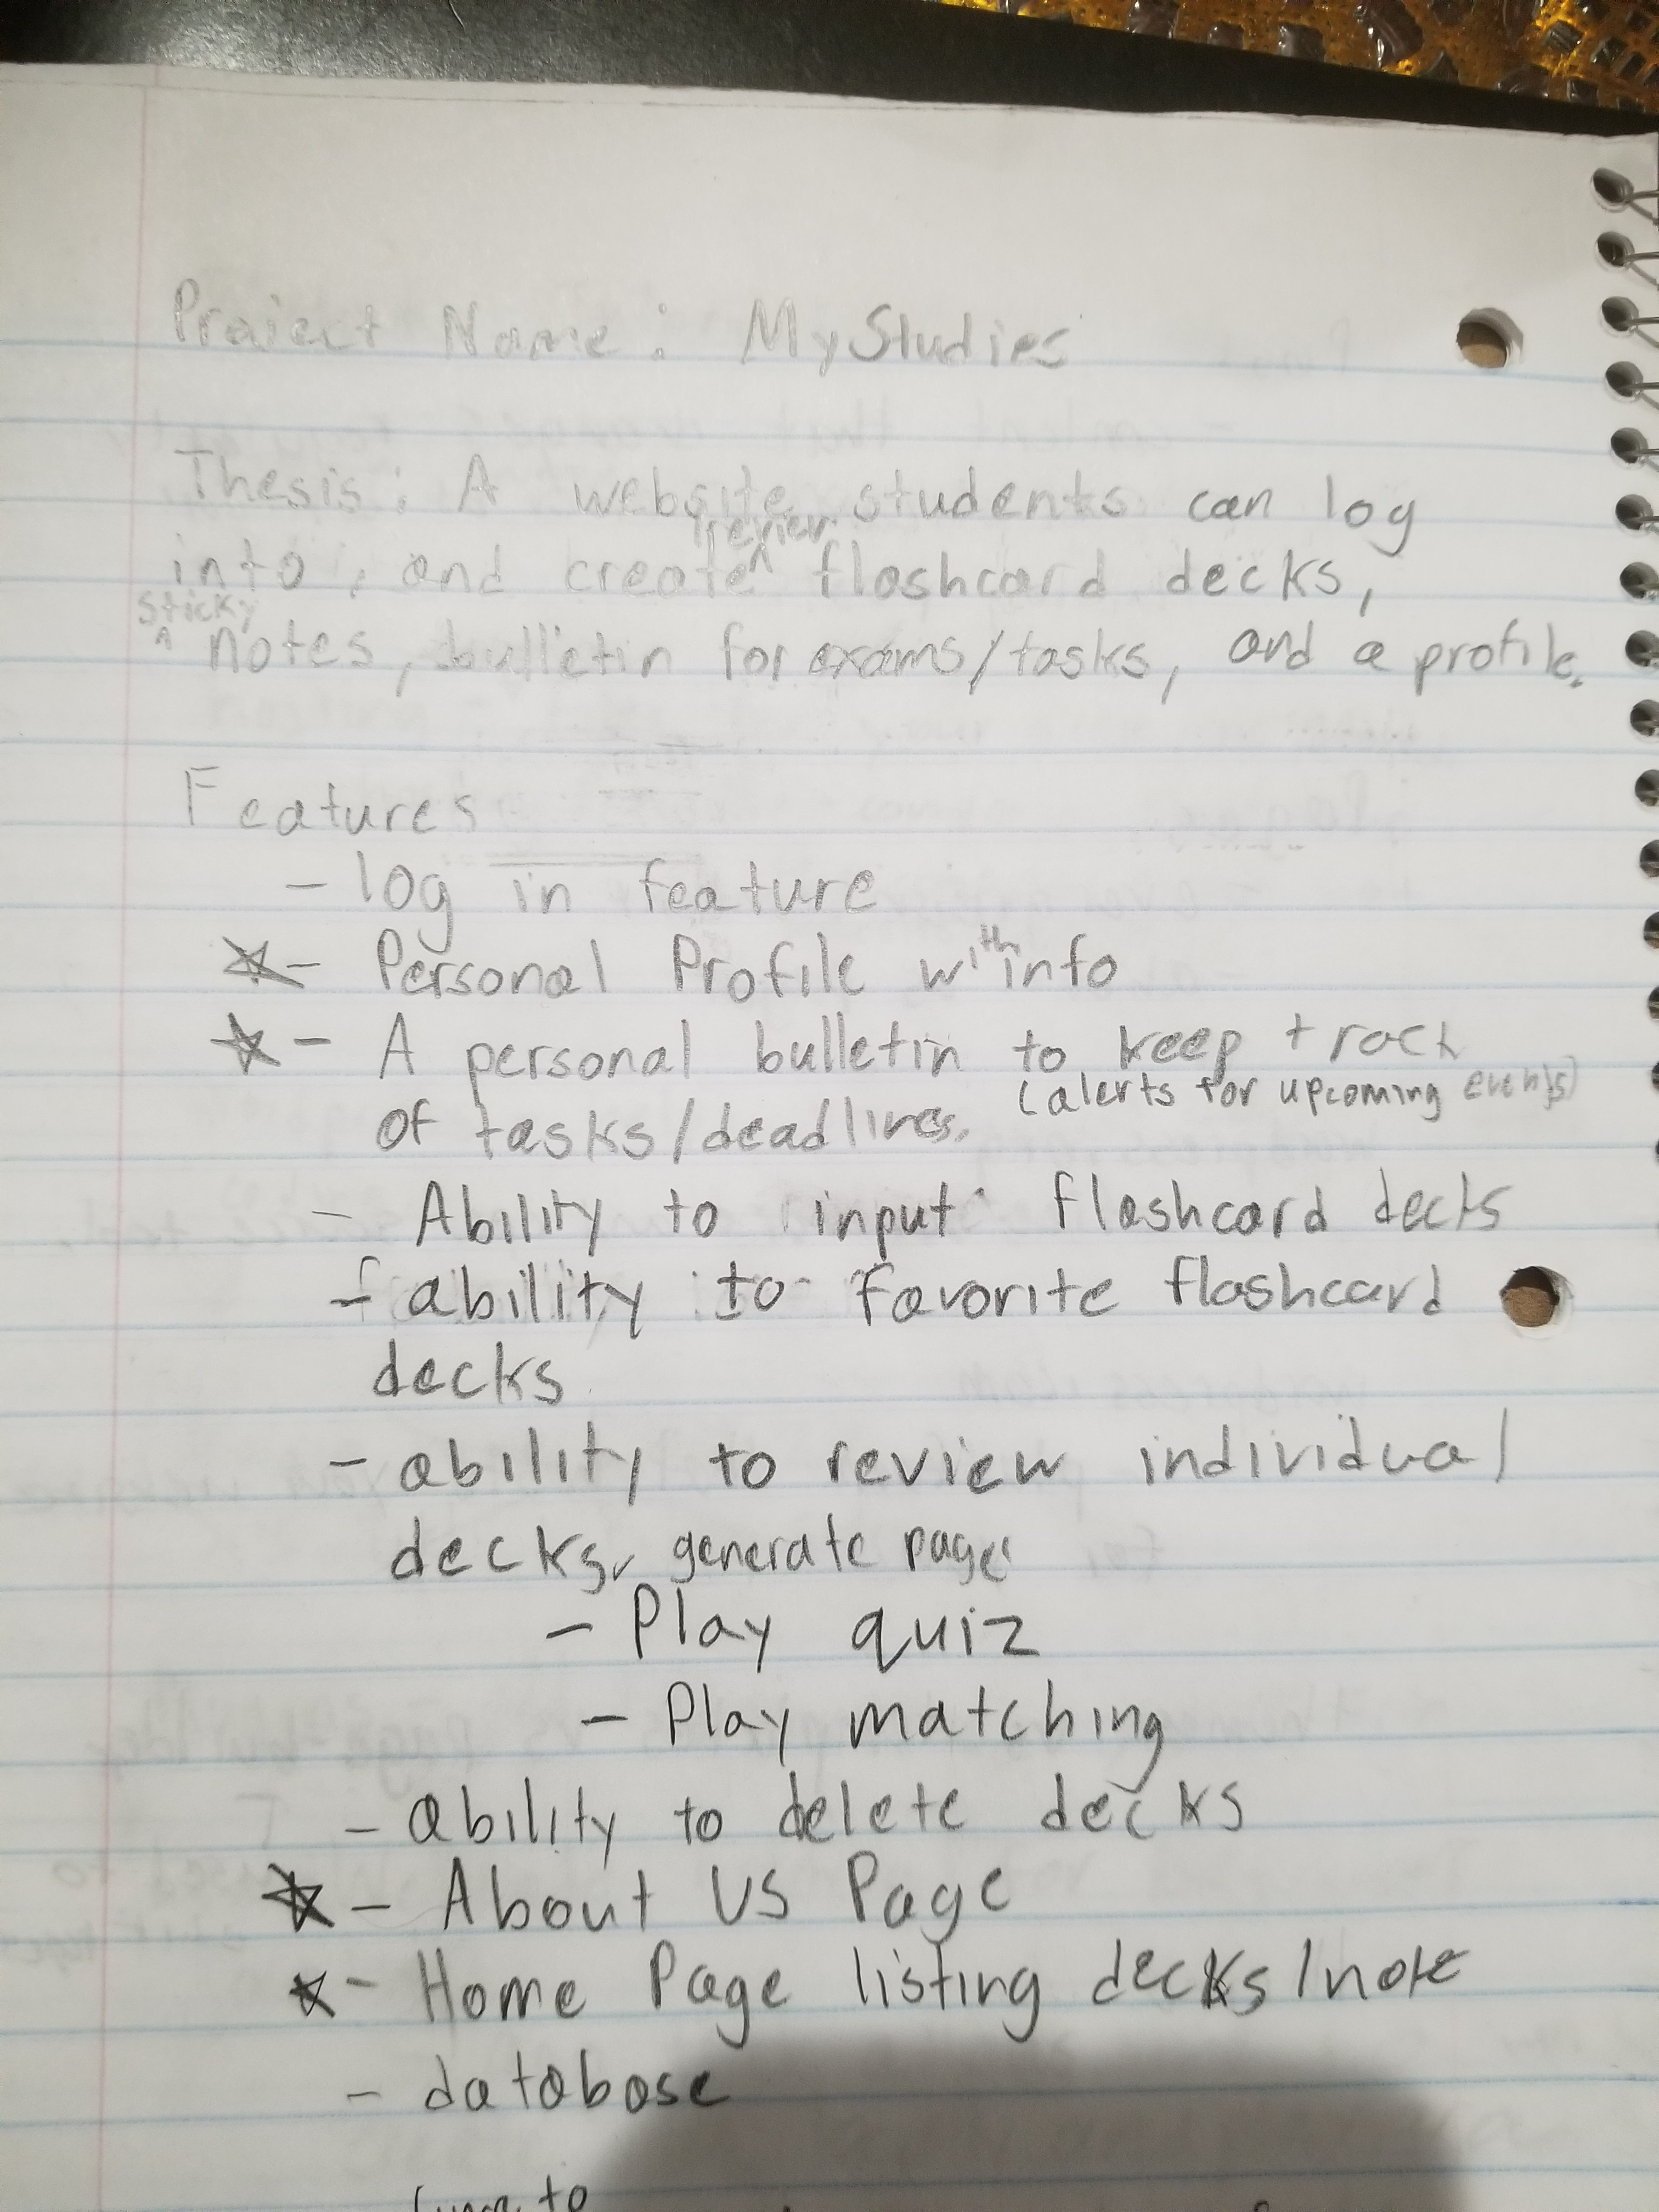 Project Name: MyStudies
Thesis: A website students can log
into, and create ^review flashcard decks,
^sticky notes, bulletin for exams/tasks, and a profile.
Features
- log in feature
☆- Personal Profile with info
☆- A personal bulletin to keep track
of tasks/deadlines. (alerts for upcoming events)
- Ability to input flashcard decks
- ability to favorite flashcard
decks
- ability to review individual
decks, generate page
- Play quiz
- Play matching
- ability to delete decks
☆- About US Page
☆- Home Page listing decks/note
- database
to